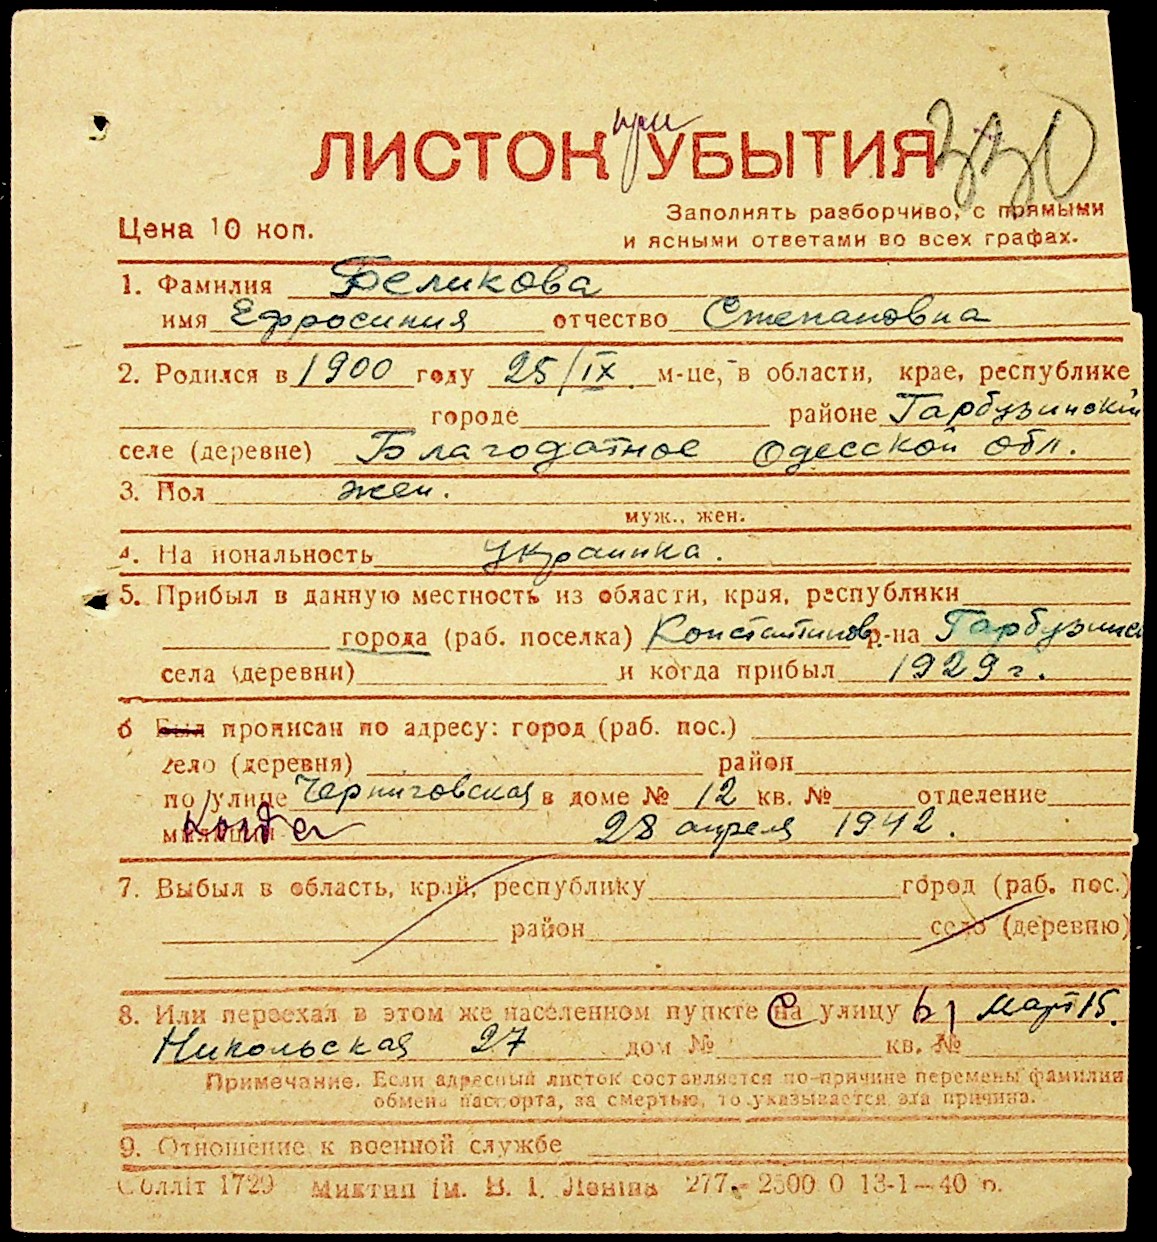 при
ЛИСТОК УБЫТИЯ 330
Цена 10 коп.
Заполнять разборчиво, с прямыми
и ясными ответами во всех графах.
1. Фамилия Беликова
имя Ефросиния отчество Степановна
2. Родился в 1900 году 25/IX м-це, в области, крае, республике
городе районе Гарбузинский
селе (деревне) Благодатное Одесской обл.
3. Пол жен.
муж., жен.
4. На иональность украинка.
5. Прибыл в данную местность из области, края, республики
города (раб. поселка) Константинов р-на Гарбузинс
села (деревни) и когда прибыл 1929 г.
6 Был прописан по адресу: город (раб. пос.)
село (деревня) район
по улице Черниговская в доме № 12 кв. № отделение
милиции 28 апреля 1942.
7. Выбыл в область, край, республику город (раб. пос.)
район село (деревню)
8. Или переехал в этом же населенном пункте С на улицу Март 15.
Никольская 27 дом № кв. №
Примечание. Если адресный листок составляется по причине перемены фамилии
обмена паспорта, за смертью, то указывается эта причина.
9. Отношение к военной службе
Облліт 1729 Миктип ім. В. І. Леніна 277 - 2500 0 13-1-40 р.